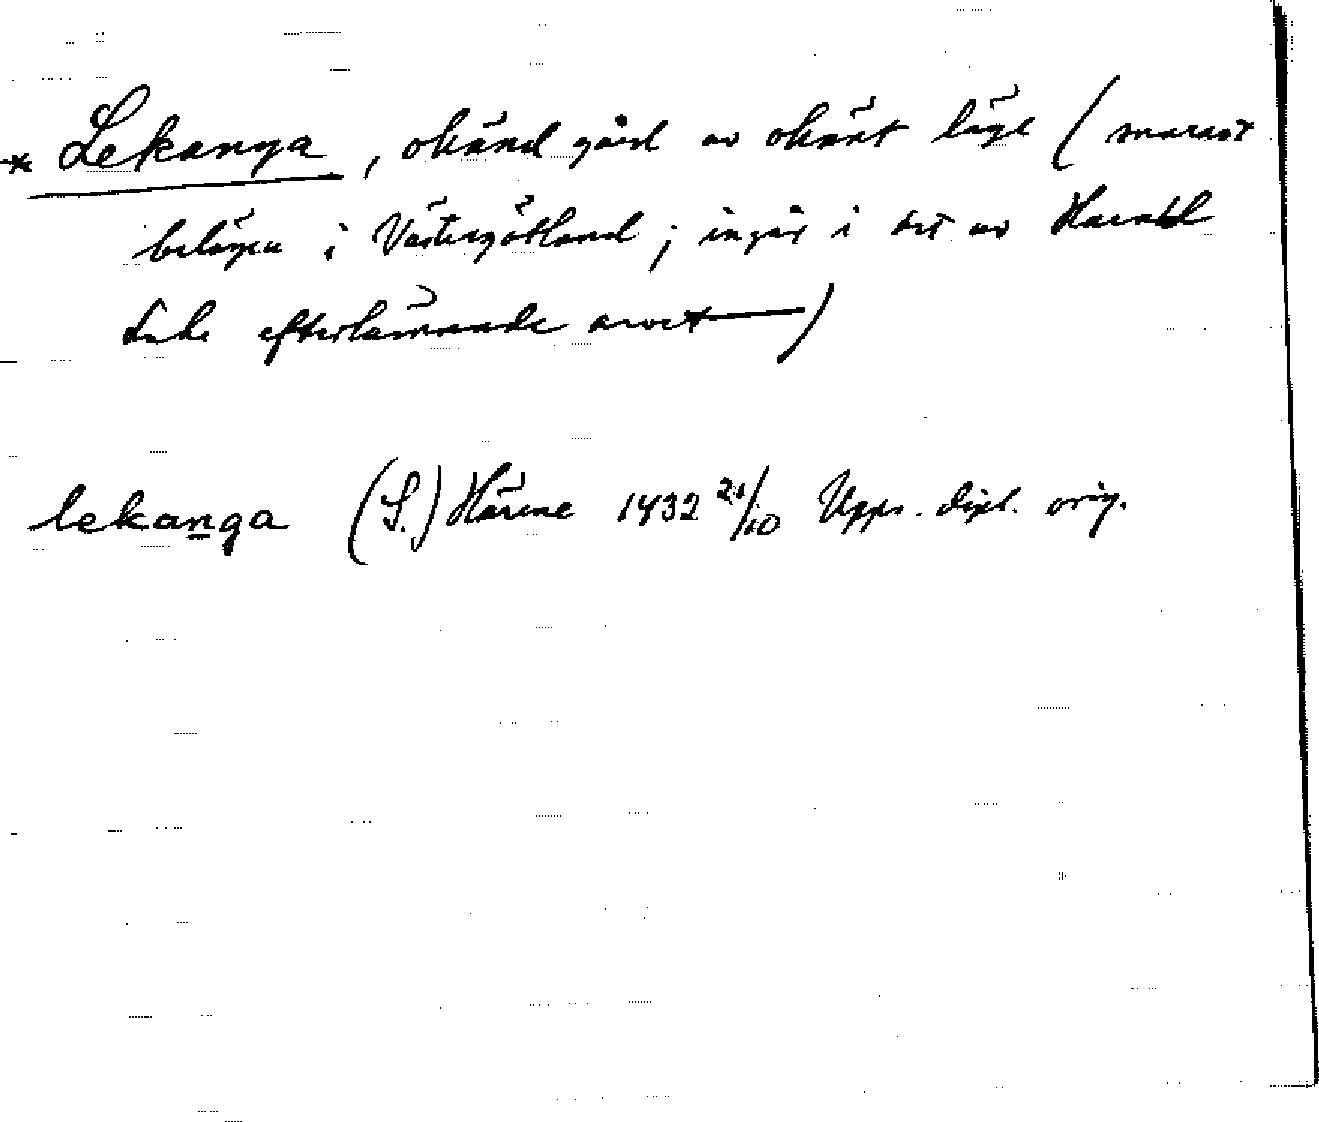 * Lekanga, okänd gård av okänt läge (snarast
belägen i Västergötland; ingår i det av Harald
efterlämnade arvet —)
lekanga (S.) Härene 1432 21/10 Upps. dipl. orig.